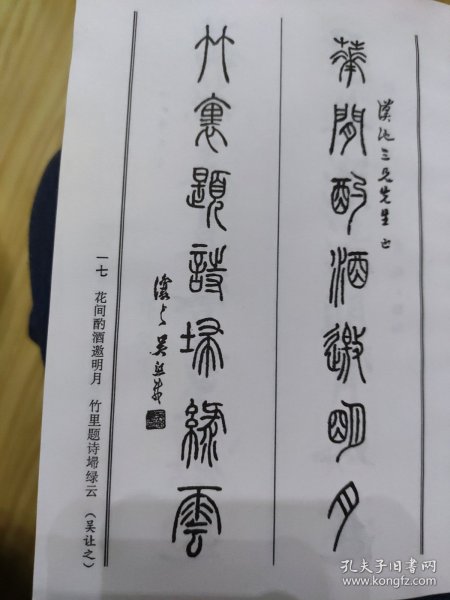 華閒酌酒邀明月
三兄先生正
竹裏題詩埽綠雲
吳熙載
一七 花间酌酒邀明月 竹里题诗埽绿云 （吴让之）
孔夫子旧书网
www.kongfz.com